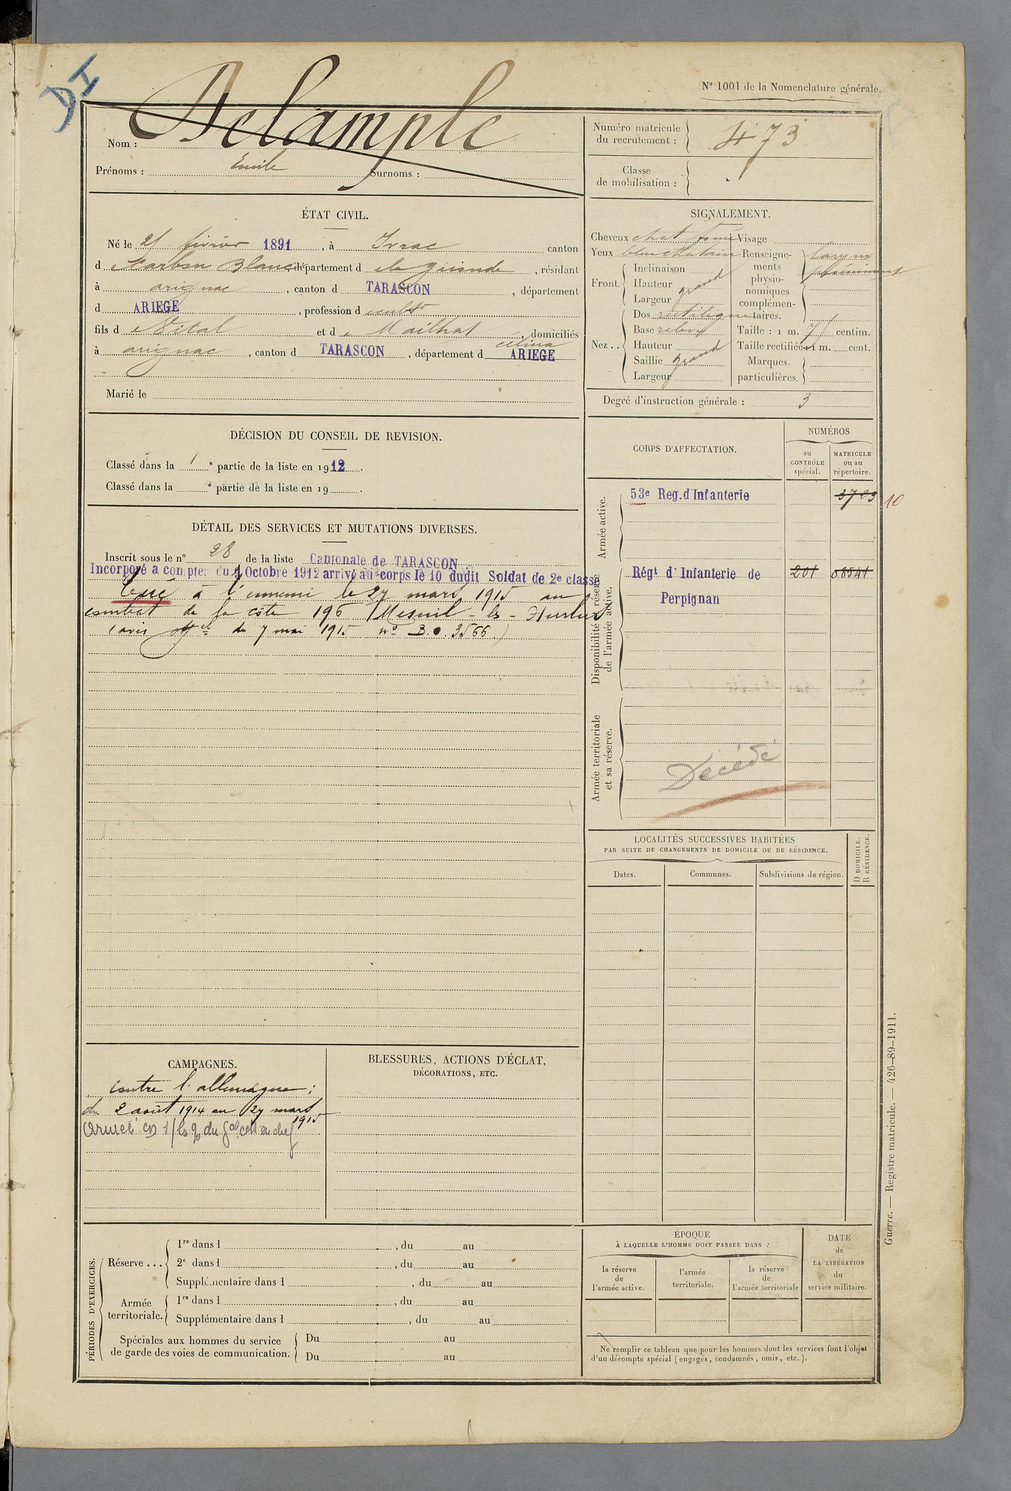 DI
N° 1001 de la Nomenclature générale.
Nom : Delample
Prénoms : Emile Surnoms :
Numéro matricule du recrutement : 473
Classe de mobilisation :
ÉTAT CIVIL.
Né le 21 février 1891, à Yvrac canton
d Carbon Blanc département d e la gironde, résidant
à arignac, canton d TARASCON, département
d ARIEGE, profession d cult
fils d e Vital et d e Mailhat célina domiciliés
à arignac, canton d TARASCON, département d ARIEGE
Marié le
SIGNALEMENT.
Cheveux chat foncé Visage
Yeux Renseignements physionomiques complémentaires.
Front. Inclinaison
Hauteur grand
Largeur
Dos rectiligne
Nez... Base relevé
Hauteur
Saillie grand
Largeur
Taille : 1 m. 71 centim.
Taille rectifiée 1 m. cent.
Marques particulières.
Degré d'instruction générale : 3
DÉCISION DU CONSEIL DE REVISION.
Classé dans la 1e partie de la liste en 1912.
Classé dans la e partie de la liste en 19 .
CORPS D'AFFECTATION.
NUMÉROS
au CONTRÔLE spécial.
MATRICULE ou au répertoire.
Armée active.
53e Reg. d'Infanterie 3703 10
Disponibilité et réserve de l'armée active.
Régt d'Infanterie de Perpignan 201
Armée territoriale et sa réserve.
Décédé
DÉTAIL DES SERVICES ET MUTATIONS DIVERSES.
Inscrit sous le n° 28 de la liste Cantonale de TARASCON
Incorporé à compter du Octobre 1912 arrivé au corps le 10 dudit Soldat de 2e classe
Tué à l'ennemi le 27 mars 1915 au
combat de la côte 196 (Mesnil-les-Hurlus
(avis off el du 7 mai 1915 n° B.O. 3566.)
LOCALITÉS SUCCESSIVES HABITÉES
PAR SUITE DE CHANGEMENTS DE DOMICILE OU DE RÉSIDENCE.
Dates. Communes. Subdivisions de région. D DOMICILE. R RÉSIDENCE.
CAMPAGNES.
contre l'allemagne ;
du 2 août 1914 au 27 mars 1915
BLESSURES, ACTIONS D'ÉCLAT,
DÉCORATIONS, ETC.
PÉRIODES D'EXERCICES.
Réserve... 1re dans l , du au
2e dans l , du au
Supplémentaire dans l , du au
Armée territoriale. 1re dans l , du au
Supplémentaire dans l , du au
Spéciales aux hommes du service de garde des voies de communication. Du au
Du au
ÉPOQUE
À LAQUELLE L'HOMME DOIT PASSER DANS :
la réserve de l'armée active.
l'armée territoriale.
la réserve de l'armée territoriale
DATE de LA LIBÉRATION du service militaire.
Ne remplir ce tableau que pour les hommes dont les services font l'objet
d'un décompte spécial (engagés, condamnés, omis, etc.).
Guerre. — Registre matricule. — 426-89-1911.